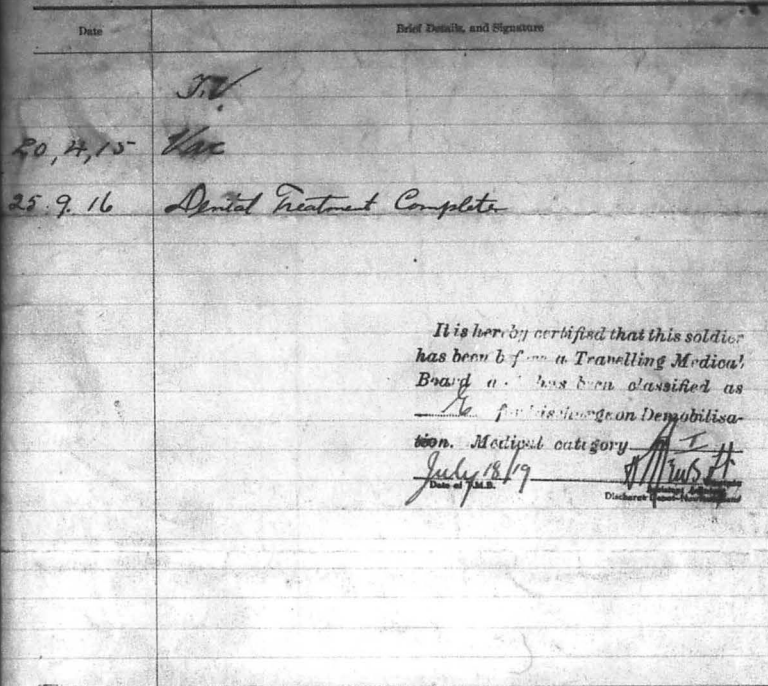 Date Brief Details, and Signature
T.V.
20,4,15 Vac
25.9.16 Dental Treatment Completer
It is hereby certified that this soldier
has been before a Travelling Medical
Board and has been classified as
E for discharge on Demobilisa-
tion. Medical category A I
July 18/19
Date of T.M.B.
Discharge Depot